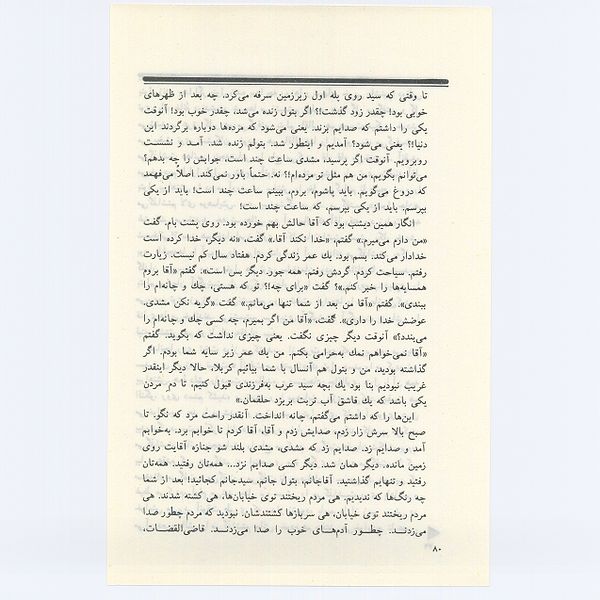 تا وقتی که سید روی پله اول زیرزمین سرفه می‌کرد. چه بعد از ظهرهای
خوبی بود! چقدر زود گذشت!؟ اگر بتول زنده می‌شد، چقدر خوب بود! آنوقت
یکی را داشتم که صدایم بزند. یعنی می‌شود که مرده‌ها دوباره برگردند این
دنیا!؟ یعنی می‌شود؟ آمدیم و اینطور شد. بتولم زنده شد. آمد و نشست
روبرویم. آنوقت اگر پرسید، مشدی ساعت چند است، جوابش را چه بدهم؟
می‌توانم بگویم، من هم مثل تو مرده‌ام!؟ نه. حتماً باور نمی‌کند. اصلاً می‌فهمد
که دروغ می‌گویم. باید پاشوم، بروم، ببینم ساعت چند است! باید از یکی
بپرسم. باید از یکی بپرسم، که ساعت چند است!
انگار همین دیشب بود که آقا حالش بهم خورده بود. روی پشت بام. گفت
«من دارم می‌میرم.» گفتم، «خدا نکند آقا.» گفت، «نه دیگر، خدا کرده است
خدادار می‌کند. بسم بود. یك عمر زندگی کردم. هفتاد سال کم نیست. زیارت
رفتم. سیاحت کردم. گردش رفتم. همه جور. دیگر بس است». گفتم «آقا بروم
همسایه‌ها را خبر کنم.»؟ گفت «برای چه!؟ تو که هستی، چك و چانه‌ام را
ببندی». گفتم «آقا من بعد از شما تنها می‌مانم.» گفت «گریه نکن مشدی.
عوضش خدا را داری». گفت، «آقا من اگر بمیرم، چه کسی چك و چانه‌ام را
می‌بندد؟» آنوقت دیگر چیزی نگفت. یعنی چیزی نداشت که بگوید. گفتم
«آقا نمی‌خواهم نمك به‌حرامی بکنم. من یك عمر زیر سایه شما بودم. اگر
گذاشته بودید، من و بتول هم آنسال با شما بیائیم کربلا، حالا دیگر اینقدر
غریب نبودیم بنا بود یك بچه سید عرب به‌فرزندی قبول کنیم، تا دم مردن
یکی باشد که یك قاشق آب تربت بریزد حلقمان.»
این‌ها را که داشتم می‌گفتم، چانه انداخت. آنقدر راحت مرد که نگو. تا
صبح بالا سرش زار زدم، صدایش زدم و آقا، آقا کردم تا خوابم برد. به‌خوابم
آمد و صدایم زد. صدایم زد که مشدی، مشدی بلند شو جنازه آقایت روی
زمین مانده. دیگر همان شد. دیگر کسی صدایم نزد... همه‌تان رفتید. همه‌تان
رفتید و تنهایم گذاشتید. آقاجانم، بتول جانم، سیدجانم کجائید! بعد از شما
چه رنگ‌ها که ندیدیم. هی مردم ریختند توی خیابان‌ها، هی کشته شدند. هی
مردم ریختند توی خیابان، هی سربازها کشتندشان. نبودید که مردم چطور صدا
می‌زدند. چطـور آدم‌هـای خوب را صدا می‌زدند. قاضی‌القضات،
۸۰